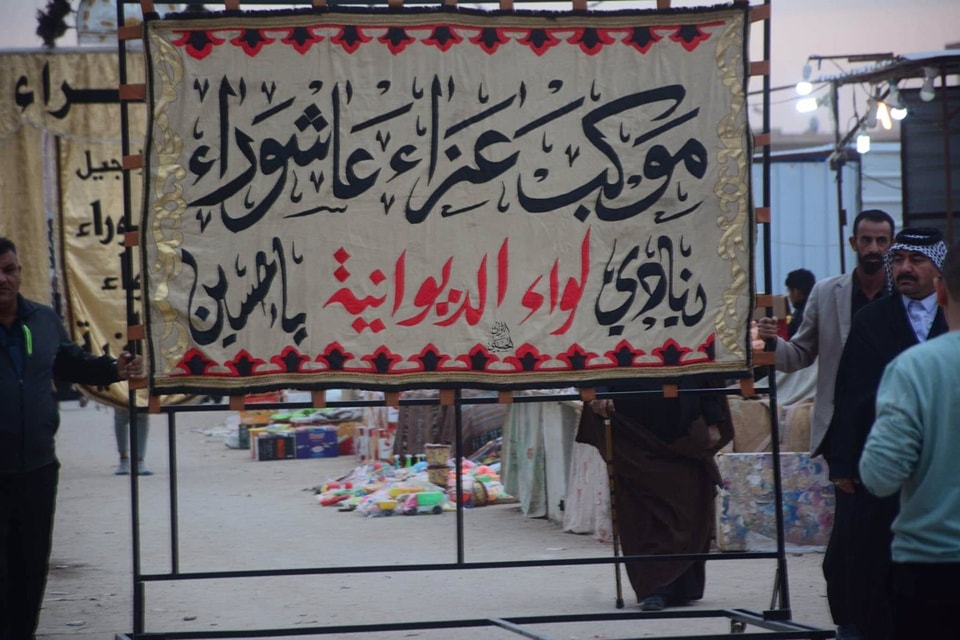 موكب عزاء عاشوراء
ينادي لواء الديوانية ياحسين
راء
جيل
وراء